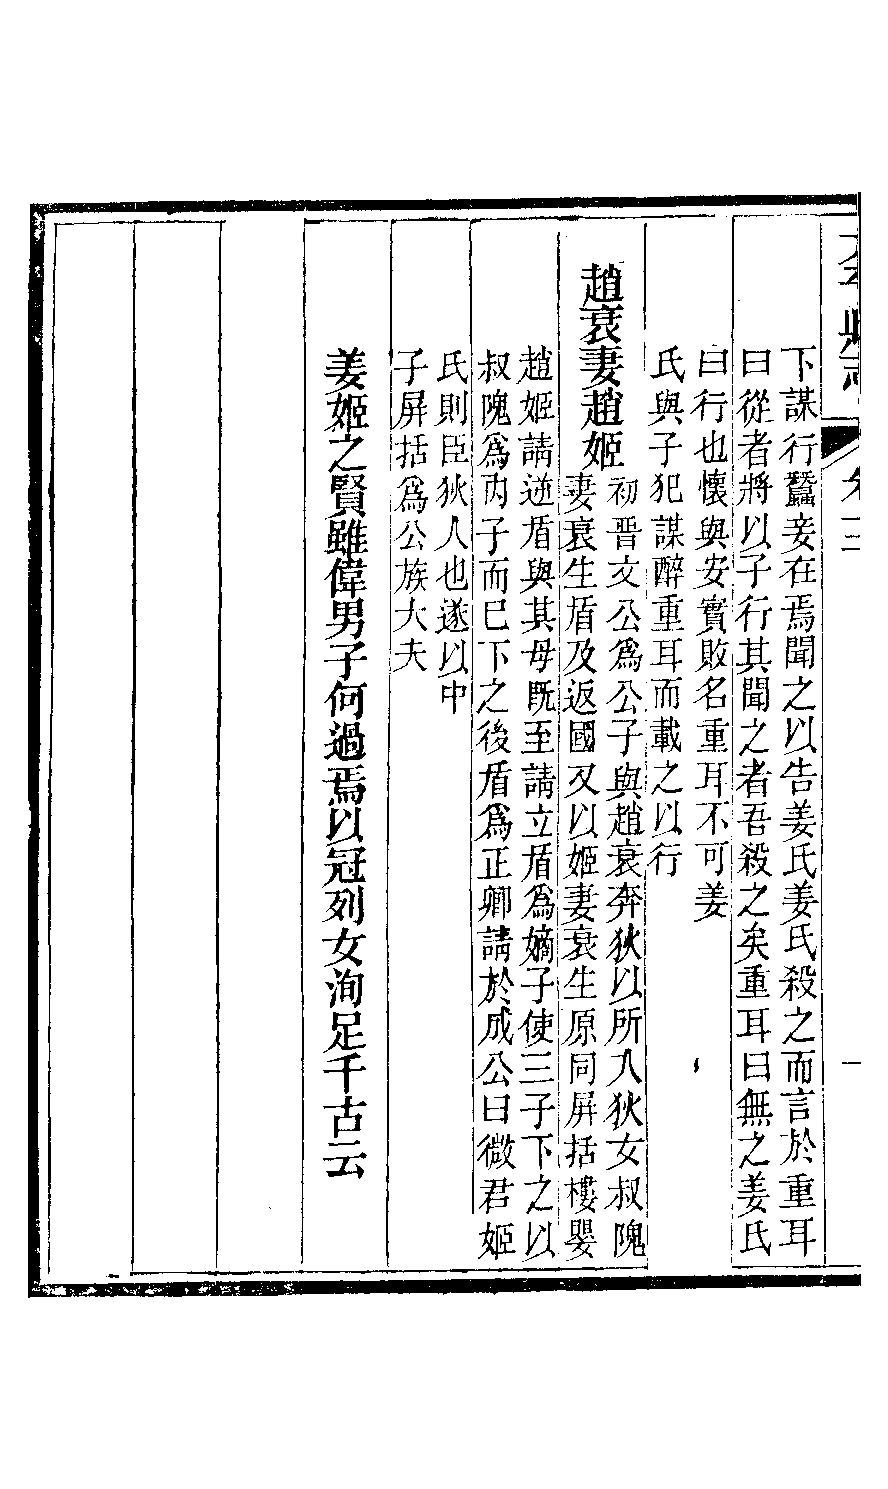 下謀行蠶妾在焉聞之以告姜氏姜氏殺之而言於重耳
曰從者將以子行其聞之者吾殺之矣重耳曰無之姜氏
曰行也懷與安實敗名重耳不可姜
氏與子犯謀醉重耳而載之以行
趙衰妻趙姬
初晋文公爲公子與趙衰奔狄以所入狄女叔隗
妻衰生盾及返國又以姬妻衰生原同屏括樓嬰
趙姬請逆盾與其母既至請立盾爲嫡子使三子下之以
叔隗爲内子而已下之後盾爲正卿請於成公曰微君姬
氏則臣狄人也遂以中
子屏括爲公族大夫
姜姬之賢雖偉男子何過焉以冠列女洵足千古云